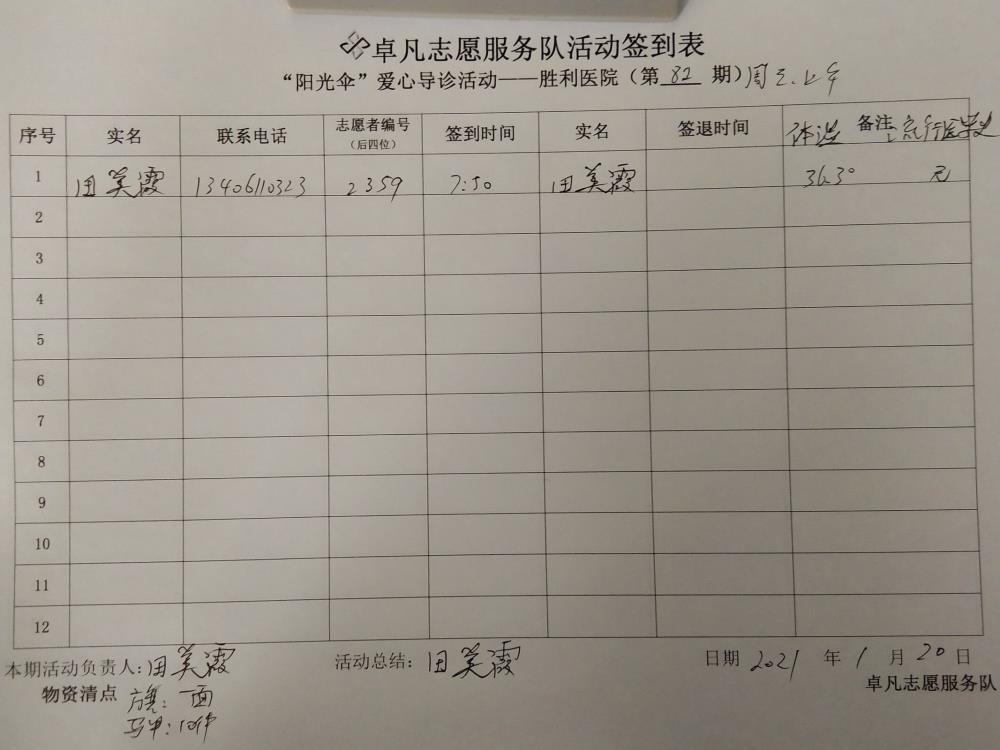 卓凡志愿服务队活动签到表
“阳光伞”爱心导诊活动——胜利医院（第 82 期）周三.上午
序号 实名 联系电话 志愿者编号（后四位） 签到时间 实名 签退时间 体温 备注 流行医学史
1 田美霞 13406110323 2359 7:50 田美霞 36.3° 无
2
3
4
5
6
7
8
9
10
11
12
本期活动负责人：田美霞 活动总结：田美霞 日期 2021 年 1 月 20 日
物资清点 旗：一面 卓凡志愿服务队
马甲：10件